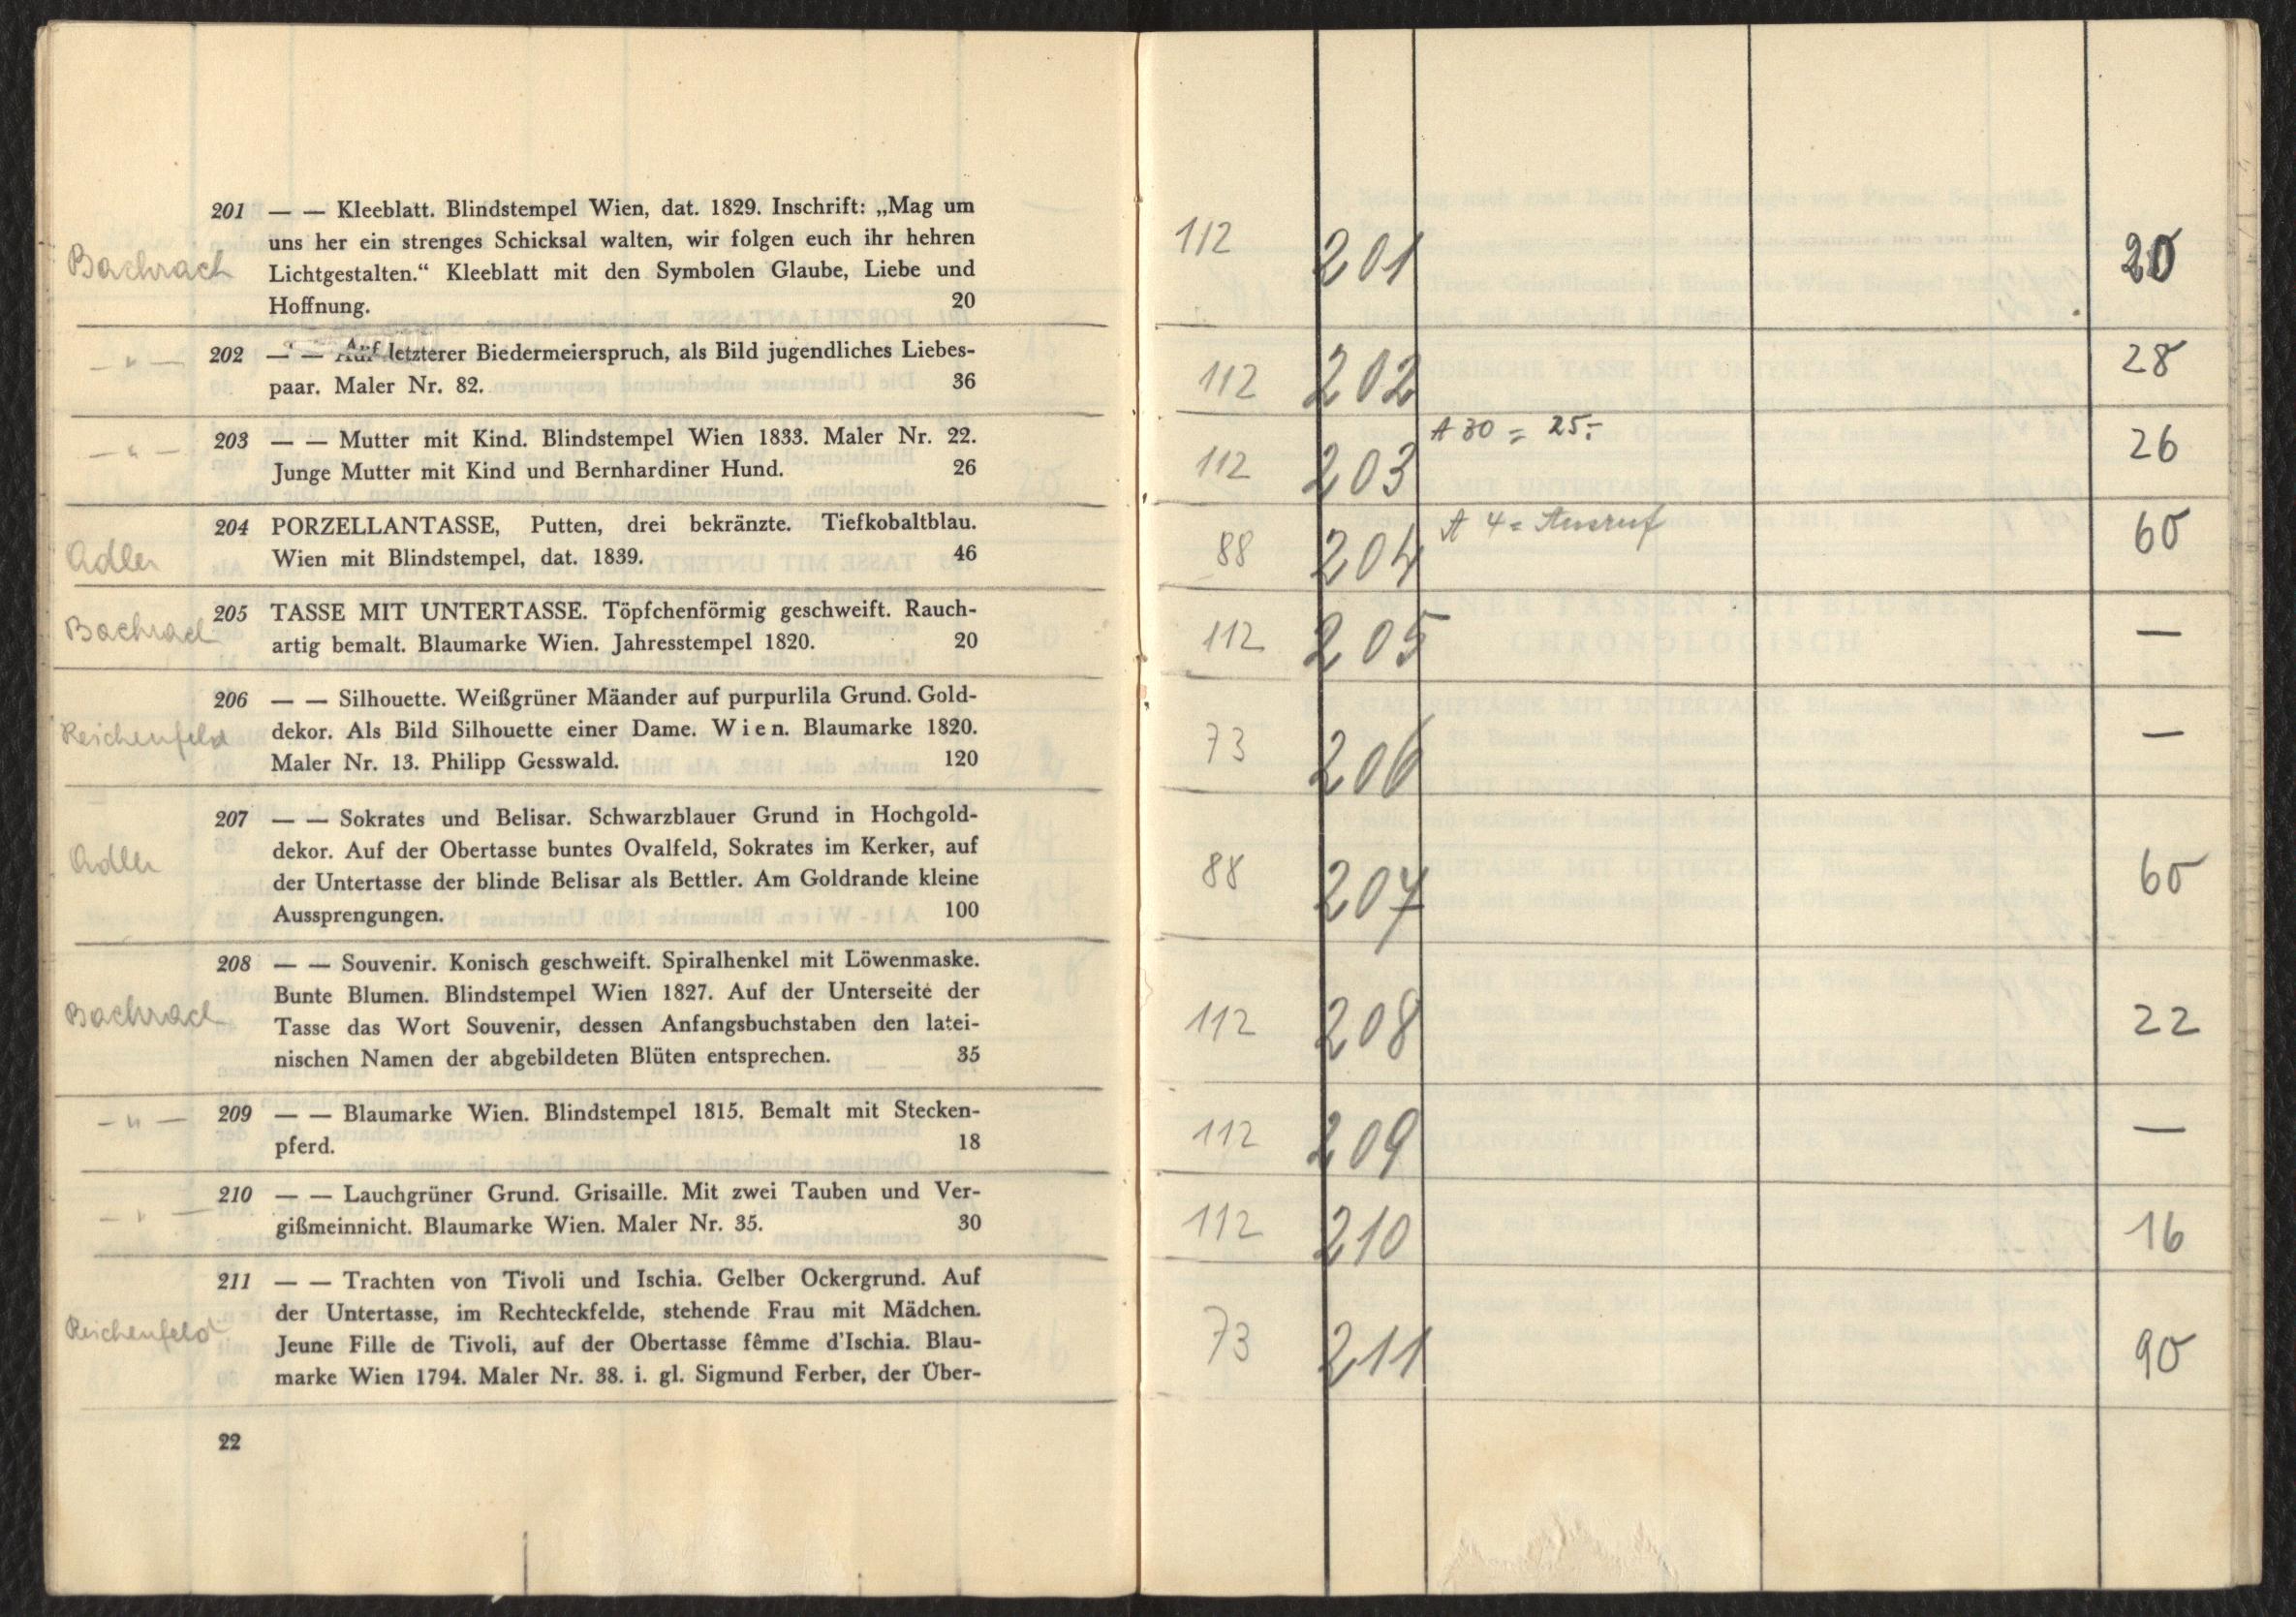 201 — — Kleeblatt. Blindstempel Wien, dat. 1829. Inschrift: „Mag um
uns her ein strenges Schicksal walten, wir folgen euch ihr hehren
Bachrach Lichtgestalten.“ Kleeblatt mit den Symbolen Glaube, Liebe und
Hoffnung. 20
— " — 202 — — Auf letzterer Biedermeierspruch, als Bild jugendliches Liebes-
paar. Maler Nr. 82. 36
— " — 203 — — Mutter mit Kind. Blindstempel Wien 1833. Maler Nr. 22.
Junge Mutter mit Kind und Bernhardiner Hund. 26
204 PORZELLANTASSE, Putten, drei bekränzte. Tiefkobaltblau.
Adler Wien mit Blindstempel, dat. 1839. 46
205 TASSE MIT UNTERTASSE. Töpfchenförmig geschweift. Rauch-
Bachrach artig bemalt. Blaumarke Wien. Jahresstempel 1820. 20
206 — — Silhouette. Weißgrüner Mäander auf purpurlila Grund. Gold-
Reichenfeld dekor. Als Bild Silhouette einer Dame. Wien. Blaumarke 1820.
Maler Nr. 13. Philipp Gesswald. 120
207 — — Sokrates und Belisar. Schwarzblauer Grund in Hochgold-
Adler dekor. Auf der Obertasse buntes Ovalfeld, Sokrates im Kerker, auf
der Untertasse der blinde Belisar als Bettler. Am Goldrande kleine
Aussprengungen. 100
208 — — Souvenir. Konisch geschweift. Spiralhenkel mit Löwenmaske.
Bunte Blumen. Blindstempel Wien 1827. Auf der Unterseite der
Bachrach Tasse das Wort Souvenir, dessen Anfangsbuchstaben den latei-
nischen Namen der abgebildeten Blüten entsprechen. 35
— " — 209 — — Blaumarke Wien. Blindstempel 1815. Bemalt mit Stecken-
pferd. 18
— " — 210 — — Lauchgrüner Grund. Grisaille. Mit zwei Tauben und Ver-
gißmeinnicht. Blaumarke Wien. Maler Nr. 35. 30
211 — — Trachten von Tivoli und Ischia. Gelber Ockergrund. Auf
der Untertasse, im Rechteckfelde, stehende Frau mit Mädchen.
Reichenfeld Jeune Fille de Tivoli, auf der Obertasse fêmme d'Ischia. Blau-
marke Wien 1794. Maler Nr. 38. i. gl. Sigmund Ferber, der Über-
22
112 201 20
112 202 28
112 203 A 30 = 25.- 26
88 204 A 4 = Ausruf 60
112 205 —
73 206 —
88 207 60
112 208 22
112 209 —
112 210 16
73 211 90